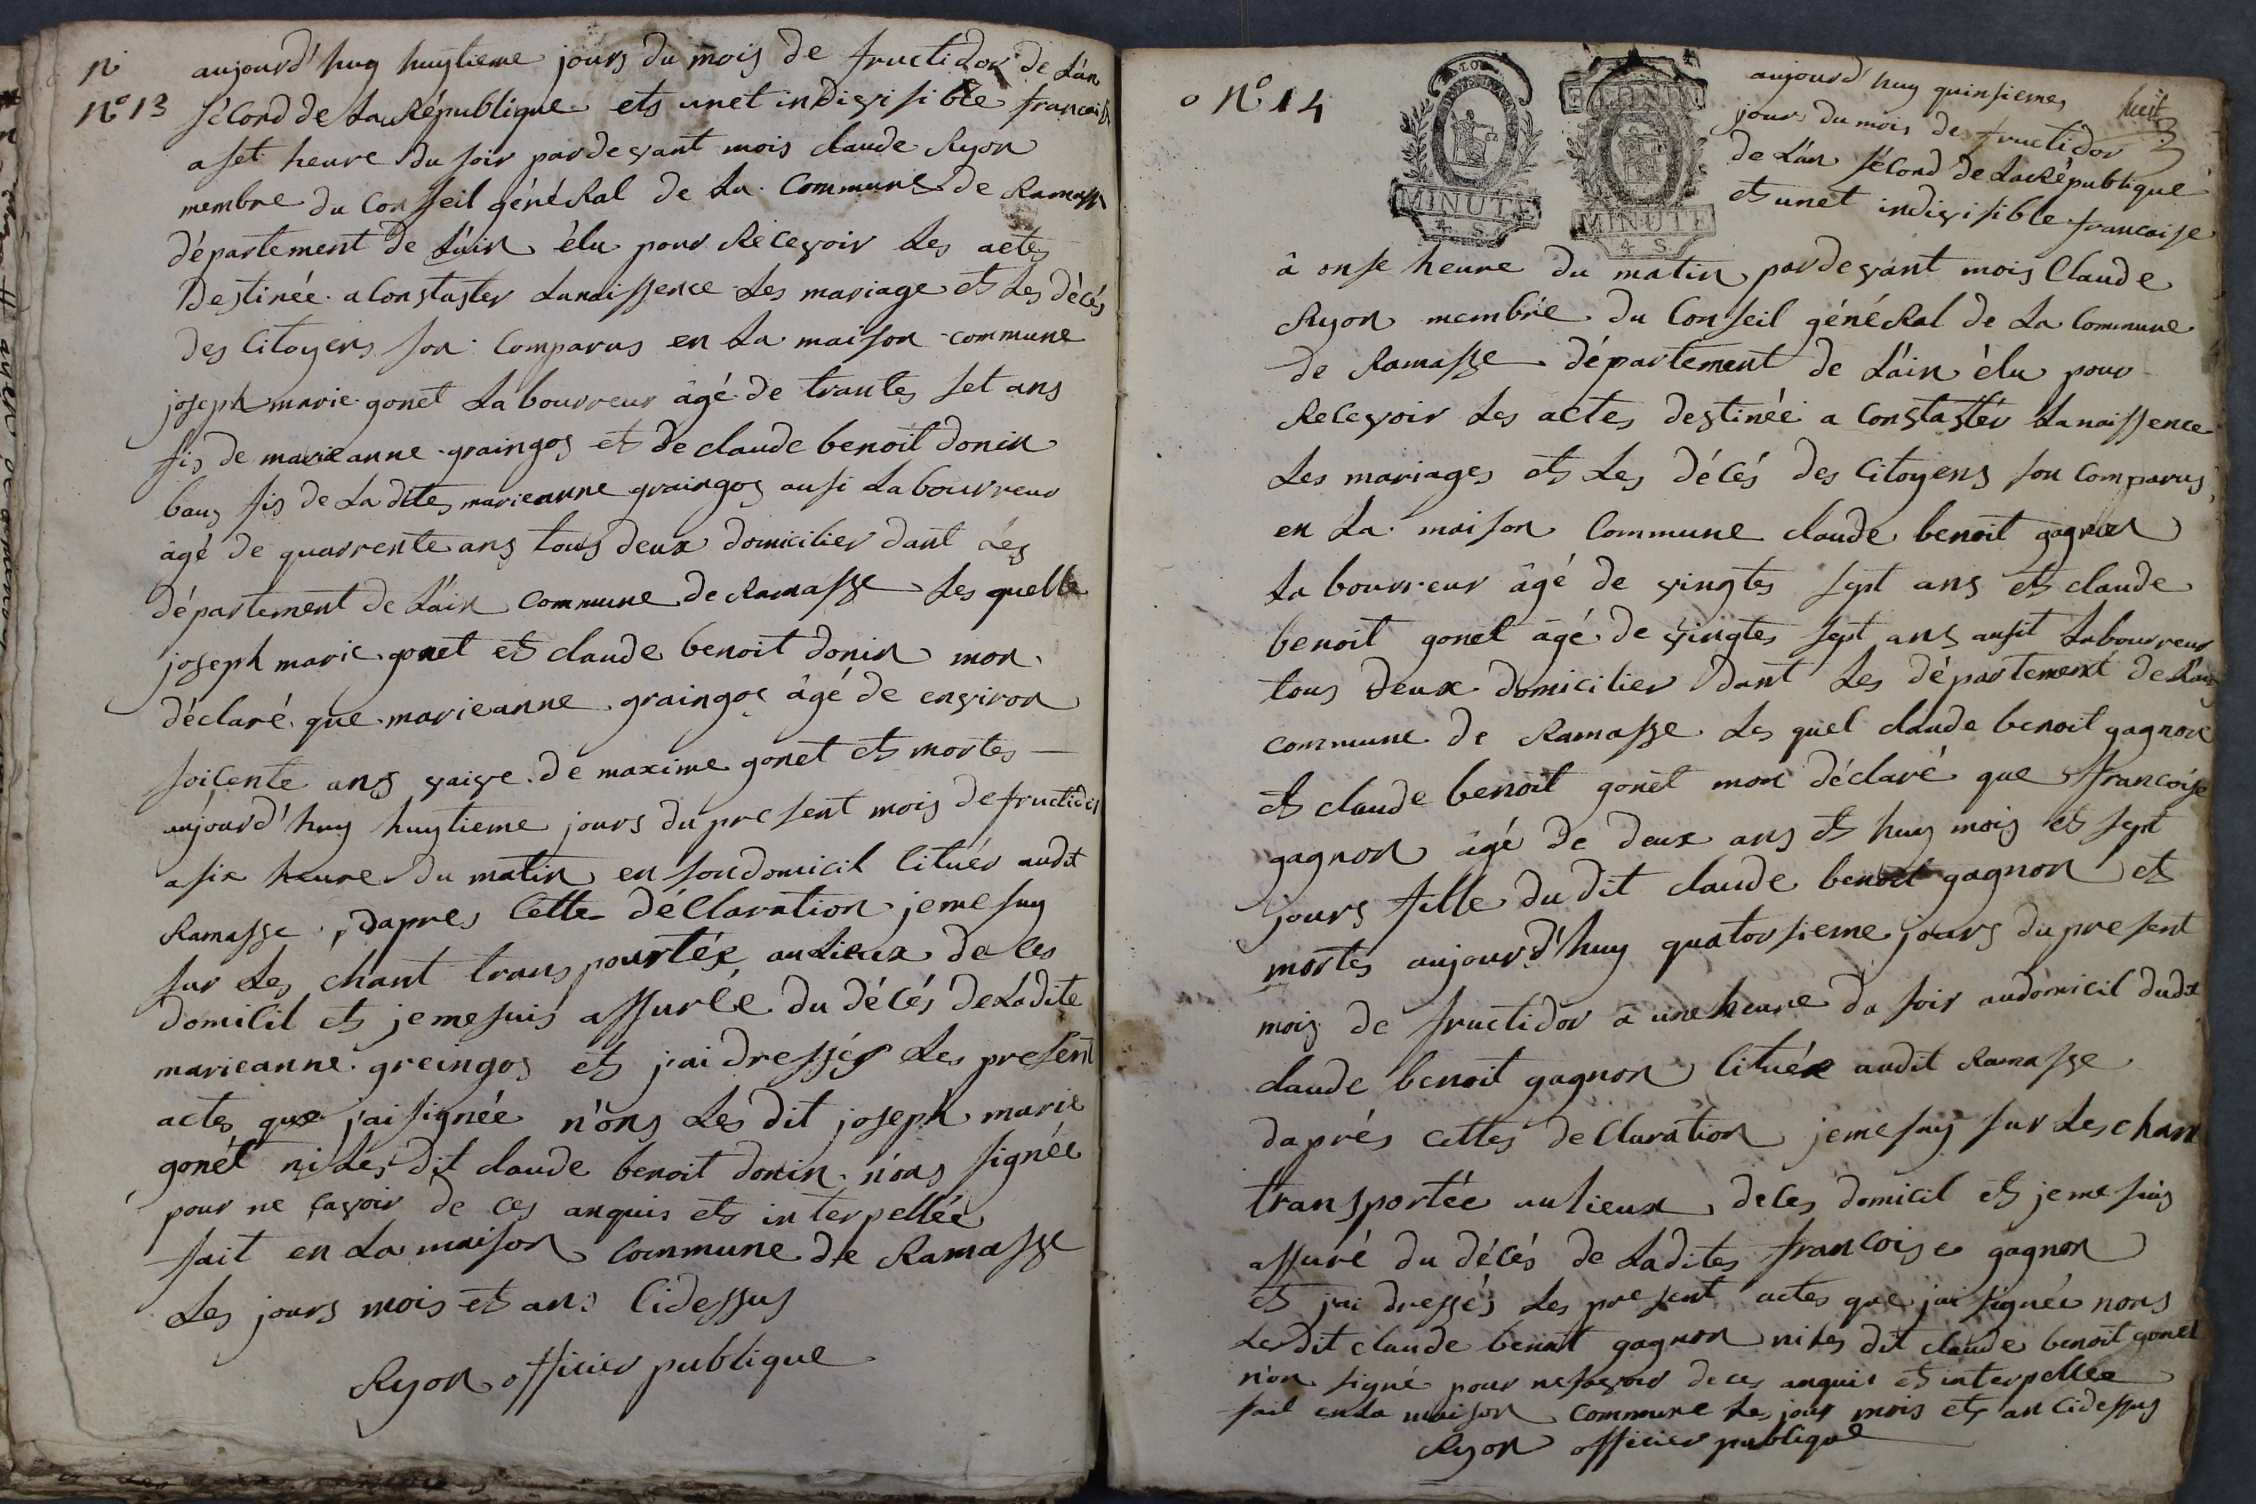 n
N° 13
aujourd'huy huytieme jours du mois de fructidor de L'an
sécond de La République ets unet indivisible francaise
a set heure du soir pardevant mois claude Ryon
membre du Conseil généRal de La Commune de Ramasse
département de L'ain élu pour Recevoir Les actes
destinée a Constaster Lanaissence Les mariage ets Les décés
des Citoyens son Comparus en La maison commune
joseph marie gonet Labourreur âgé de trantes set ans
fis de marieanne graingos ets de claude benoit donin
baus fis de Ladites marieanne graingos ausi Labourreur
âgé de quarrente ans tous deux domicilier dant Les
département de L'ain Commune de Ramasse Les quelle
joseph marie gonet ets claude benoit donin mon
déclaré que marieanne graingos âgé de environ
soicente ans vaive de maxime gonet ets mortes
aujourd'huy huytieme jours du present mois de fructidor
a six heure du matin en son domicil Cituér audit
Ramasse, dapres Cette déClaration jeme suy
sur Les chant trans pourtée au Lieux de Ces
domicil ets jeme suis assurée du décés deLadite
marieanne greingos ets j'ai dressés Les present
actes que j'ai signée n'ons Les dit joseph marie
gonét ni Les dit claude benoit donin n'ons signée
pour ne savoir de Ces anquis ets interpellée
fait en La maison Commune de Ramasse
Les jours mois ets an Cidessus
Ryon officier publique
N° 14
MINUTE
4 S.
MINUTE
4 S.
huit
aujourd'huy quinsiemes
jours du mois de fructidor
de L'an sécond de LaRépublique
ets unet indivisible francaise
â onse heure du matin pardevant mois Claude
Ryon membre du Conseil généRal de La Commune
de Ramasse département de L'ain élu pour
Recevoir Les actes destinée a Constastér Lanaissence
Les mariages ets Les décés des Citoyens son Comparus
en La maison Commune claude benoit gagnon
Labourreur âgé de vingtes sept ans ets claude
benoit gonet âgé de vingtes sept ans ausit Labourreur
tous deux domicilier dant Les département de L'ain
commune de Ramasse Les quel claude benoit gagnon
ets claude benoit gonet mon déclaré que francoise
gagnon âgé de deux ans ets huy mois ets sept
jours fille du dit claude benoit gagnon ets
mortes aujourd'huy quatorsieme jours du present
mois de fructidor a une heure du soir audomicil dudit
claude benoit gagnon Cituée audit Ramasse
daprés Cettes deClaration jeme suy sur Les chant
transportée au Lieux deCes domicil ets jeme suis
assuré du décés de Ladites francoise gagnon
ets j'ai dressés Les present actes que j'ai signée nons
Le dit claude benoit gagnon ni Les dit claude benoit gonet
n'on signé pour ne savoir de ces anquis ets interpellée
fait en La maison Commune Les jour mois ets an Cidessus
Ryon officier publique